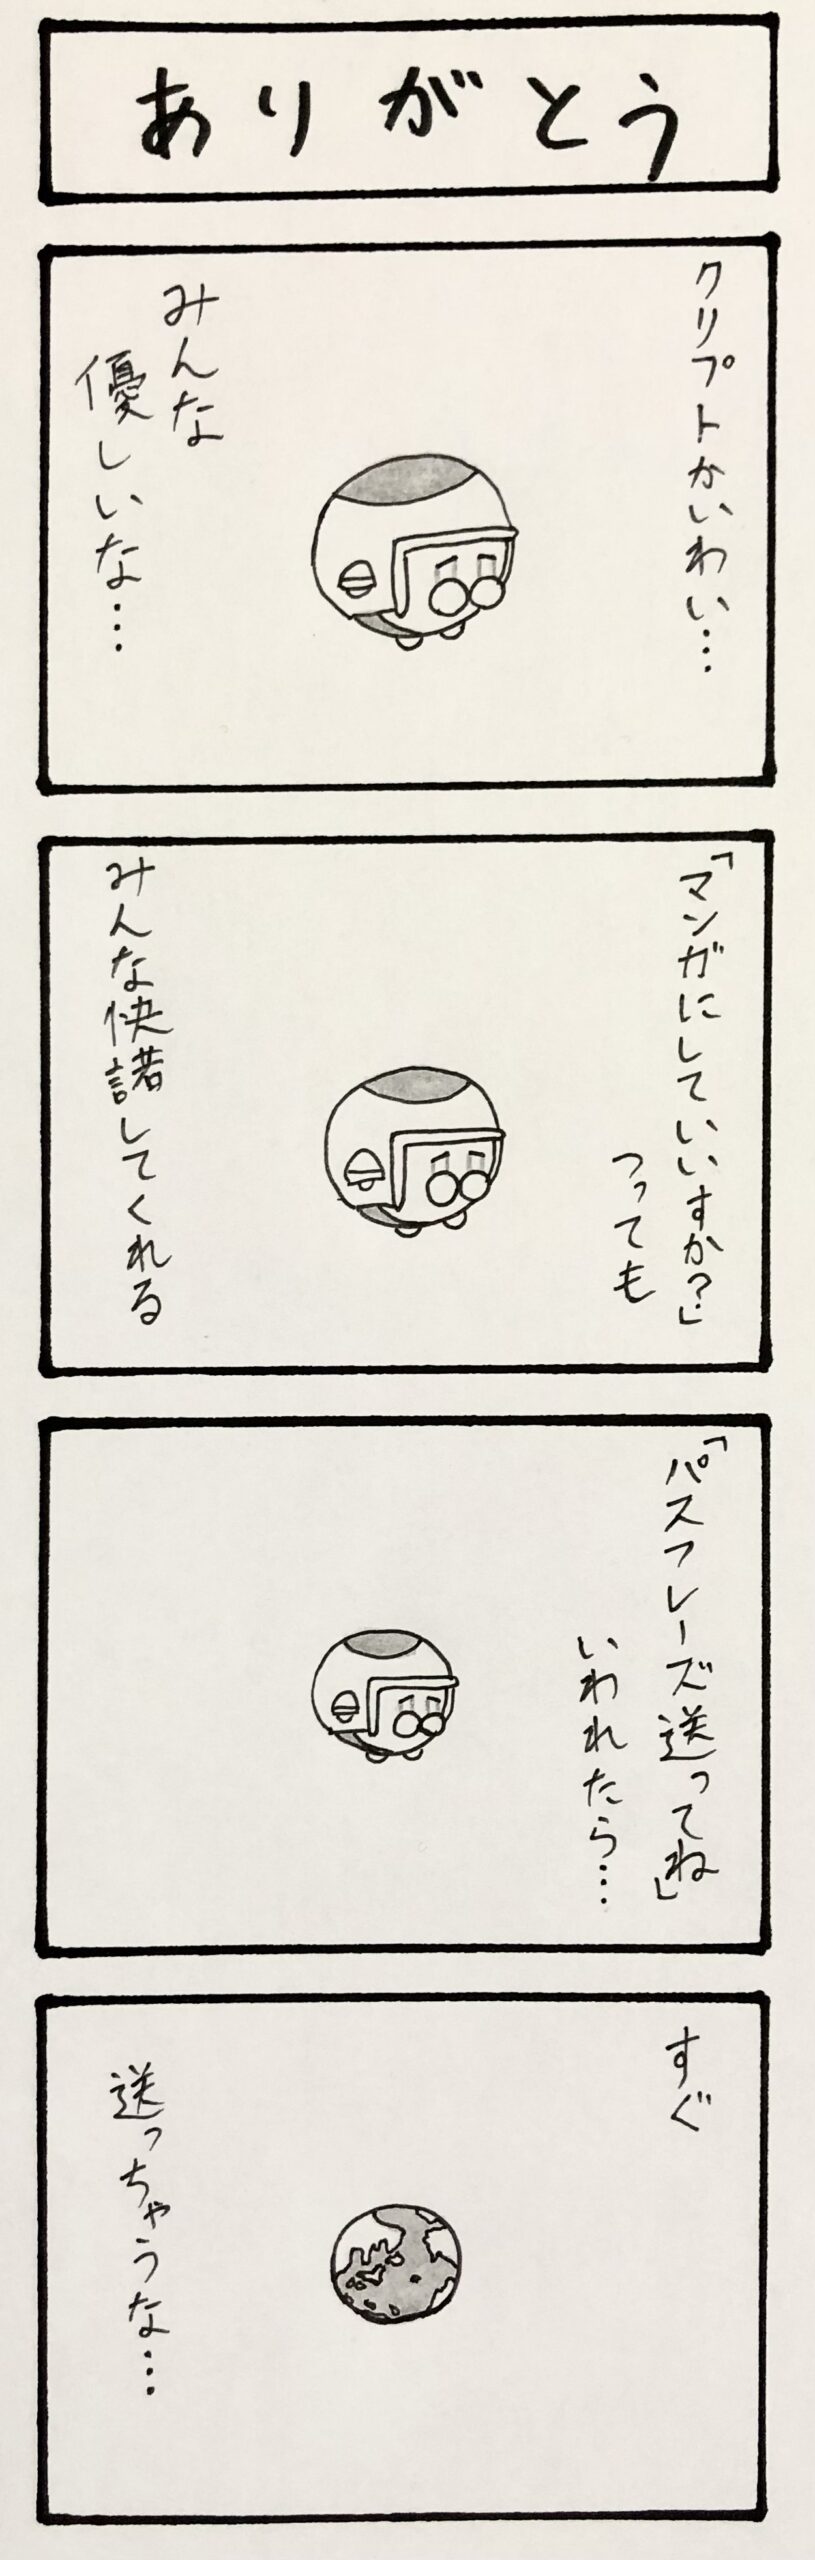 ありがとう
クリプトかいわい…
みんな
優しいな…
「マンガにしていいすか?」
つっても
みんな快諾してくれる
「パスフレーズ送ってね」
いわれたら…
すぐ
送っちゃうな…